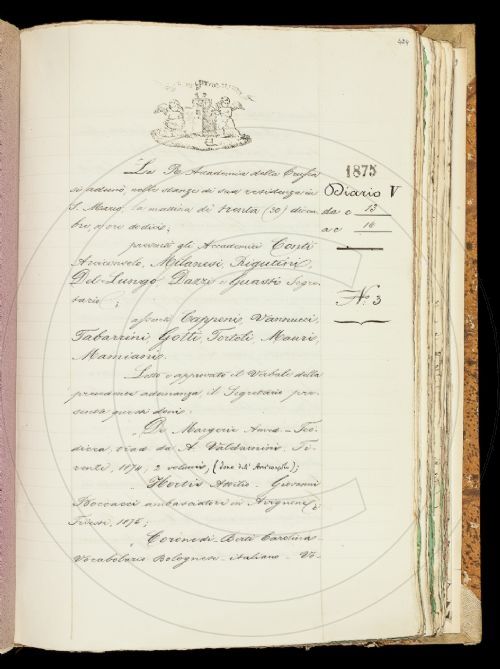 424
La R. Accademia della Crusca
si adunò nelle stanze di sua residenza in
S. Marco, la mattina di trenta (30) decem-
bre, a ore dodici;
presenti gli Accademici Conti
Arciconsolo, Milanesi, Rigutini,
Del-Lungo, Dazzi e Guasti Segre-
tario;
assenti Capponi, Vannucci,
Tabarrini, Gotti, Tortoli, Mauri,
Mamiani.
Letto e approvato il Verbale della
precedente adunanza, il Segretario pre-
senta questi doni:
De Margerie Amed. – Teo-
dicea, trad. da A. Valdarnini, Fi-
renze, 1874, 2 volumi, (dono dell'Arciconsolo);
Hortis Attilio – Giovanni
Boccacci ambasciatore in Avignone,
Trieste, 1875;
Coronedi-Berti Carolina –
Vocabolario Bolognese-italiano – Vo-
1875
Diario V
da c 13
a c 16
N.º 3